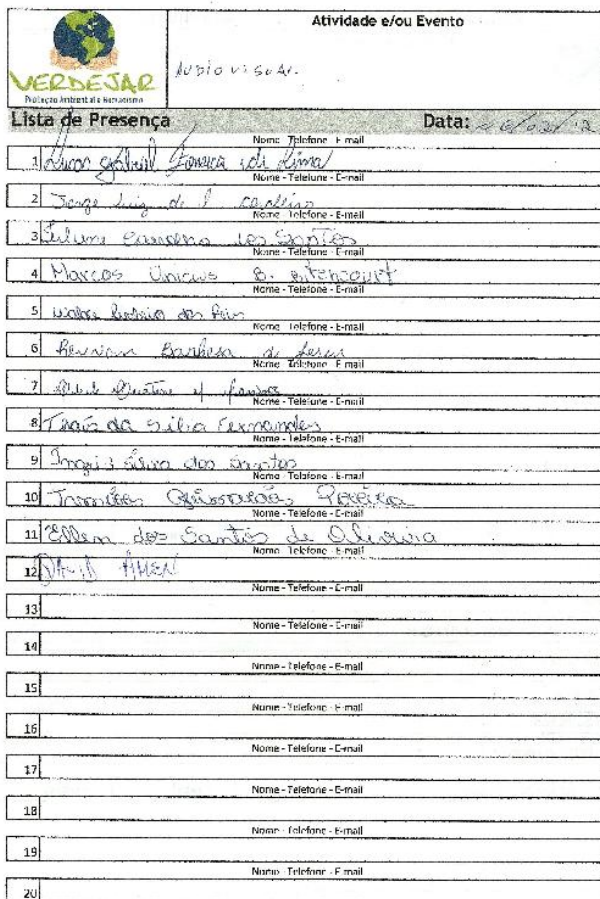 Atividade e/ou Evento
VERDEJAR
Proteção Ambiental e Humanismo
AUDIOVISUAL.
Lista de Presença Data:
Nome - Telefone - E-mail
1 Lucas Gabriel Fonseca de Lima
Nome - Telefone - E-mail
2 Jorge Luiz de
Nome - Telefone - E-mail
3 dos Santos
Nome - Telefone - E-mail
4 Marcos Vinicius B. Bitencourt
Nome - Telefone - E-mail
5 dos
Nome - Telefone - E-mail
6 Barbosa
Nome - Telefone - E-mail
7
Nome - Telefone - E-mail
8 Thaís da Silva Fernandes
Nome - Telefone - E-mail
9 Silva dos Santos
Nome - Telefone - E-mail
10
Nome - Telefone - E-mail
11 Ellen dos Santos de Oliveira
Nome - Telefone - E-mail
12 DAVID AMEN
Nome - Telefone - E-mail
13
Nome - Telefone - E-mail
14
Nome - Telefone - E-mail
15
Nome - Telefone - E-mail
16
Nome - Telefone - E-mail
17
Nome - Telefone - E-mail
18
Nome - Telefone - E-mail
19
Nome - Telefone - E-mail
20